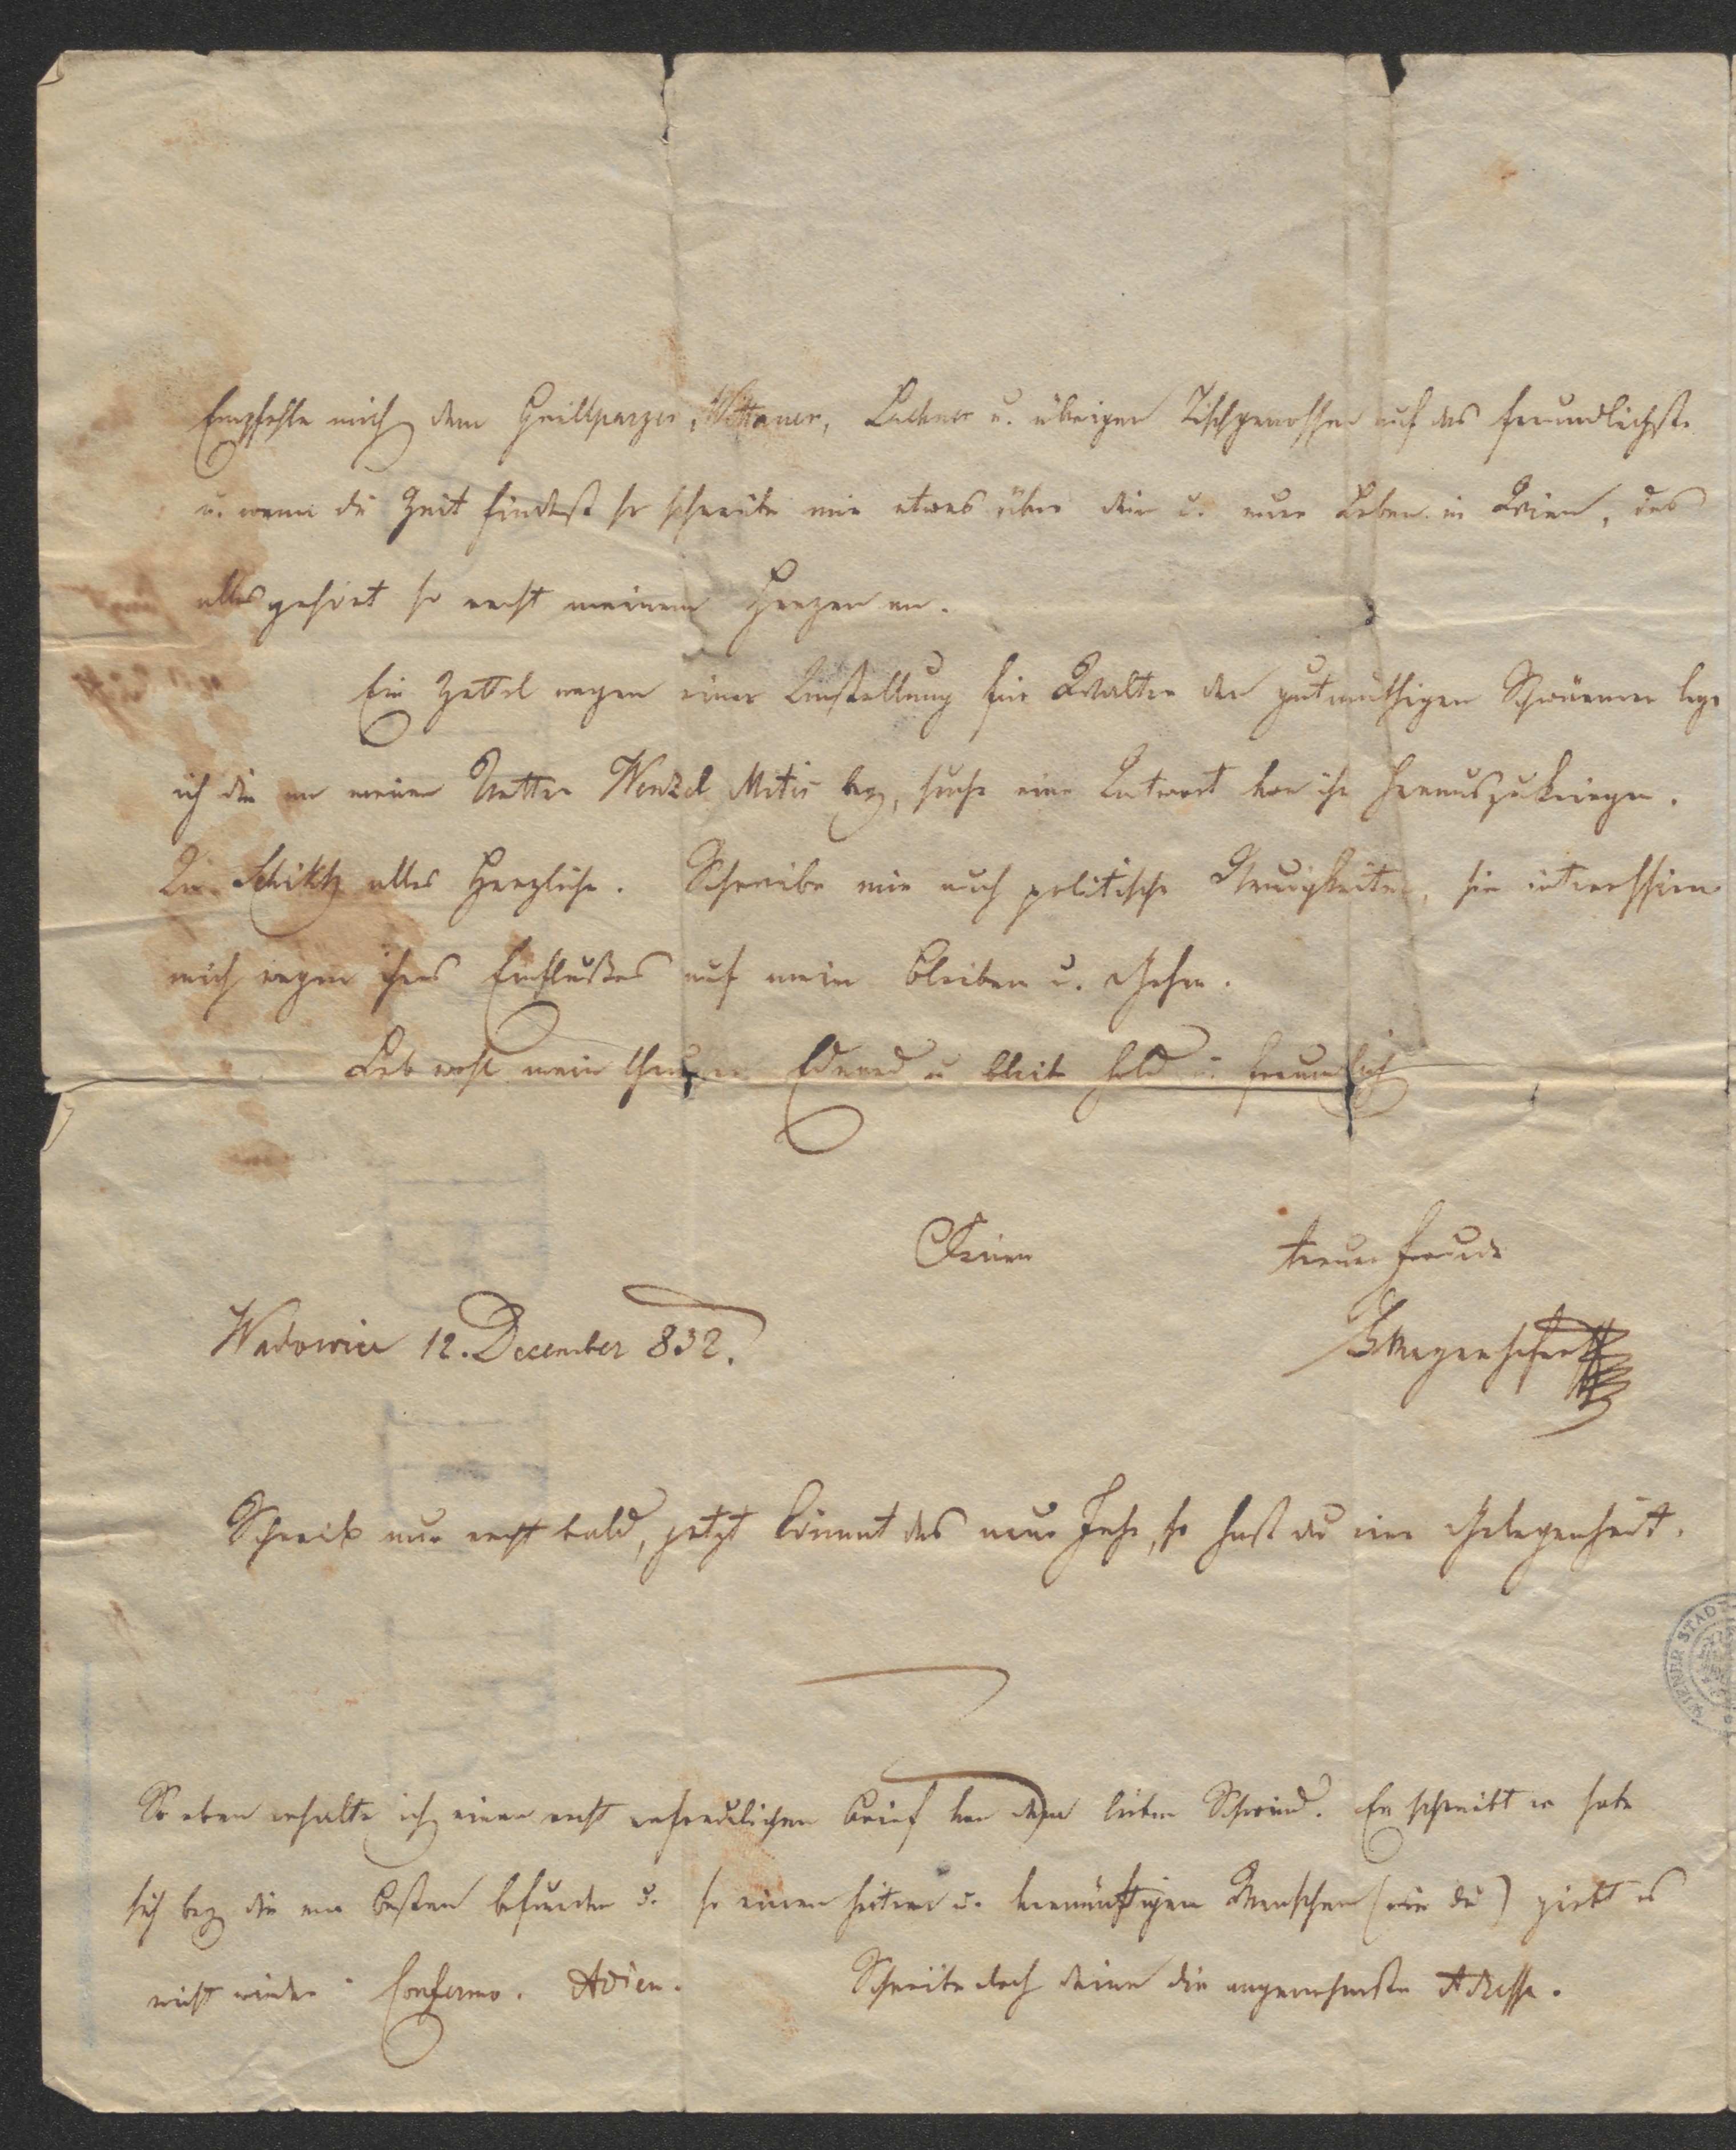 Empfehle mich dem Grillparzer, Wittauer, Lachner u. übrigen Tischgenossen auf das freundlichste
u. wenn du Zeit findest so schreibe mir etwas über dein u. euer Leben in Wien, das
alles gehört so recht meinem Herzen an.
Ein Zettel wegen einer Anstellung für Walter den gutmüthigen Schwärmer lege
ich dir an meinen Vetter Wenzel Mitis bey, suche eine Antwort von ihm herauszukriegen.
An Schikh alles Herzliche. Schreibe mir auch politische Neuigkeiten, sie interessiren
mich wegen ihres Einflußes auf mein Bleiben u. Gehen.
Leb wohl mein theurer Eduard u bleib hold u. freundlich
Deinem
treuen Freunde
Wadowice 12. December 832.
Schreib nur recht bald, jetzt kömmt das neue Jahr, so hast du eine Gelegenheit.
WIENER STADT
So eben erhalte ich einen recht erfreulichen Brief von dem lieben Schwind. Er schreibt er habe
sich bey dir am besten befunden u. so einen heitern u. vernünftigen Menschen (wie du) giebt es
nicht wieder. Confermo. Adieu. Schreibe doch deine die angenehmste Adresse.